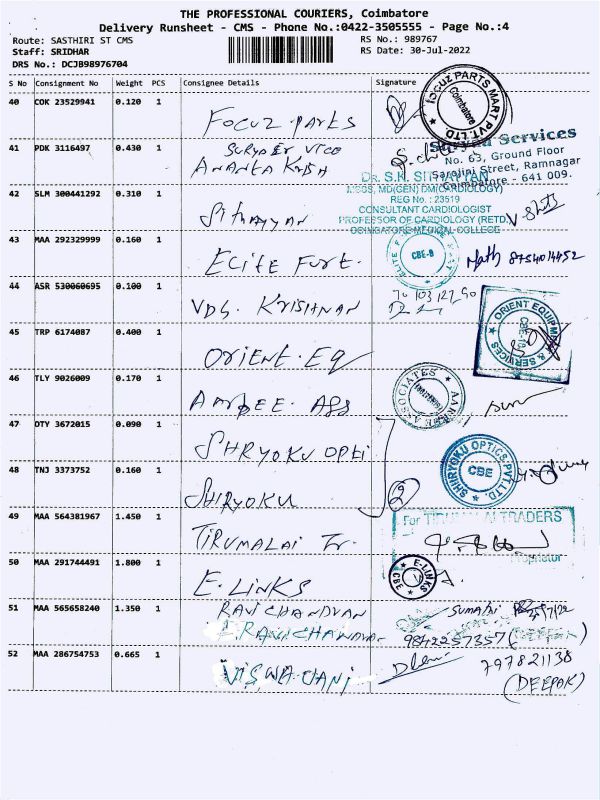 THE PROFESSIONAL COURIERS, Coimbatore
Delivery Runsheet - CMS - Phone No.:0422-3505555 - Page No.:4
Route: SASTHIRI ST CMS RS No.: 989767
Staff: SRIDHAR RS Date: 30-Jul-2022
DRS No.: DCJB98976704
S No Consignment No Weight PCS Consignee Details Signature
40 COK 23529941 0.120 1 FOCUZ PARTS
FOCUZ PARTS MART PVT. LTD. Coimbatore
41 PDK 3116497 0.430 1 SURYA
ANANTA KRISH
Surya Services
No. 63, Ground Floor
Sarojini Street, Ramnagar
Coimbatore - 641 009.
42 SLM 300441292 0.310 1 Sithayyan
Dr. S.K. SITHAYYAN
MBBS, MD(GEN) DM(CARDIOLOGY)
REG No : 23519
CONSULTANT CARDIOLOGIST
PROFESSOR OF CARDIOLOGY (RETD.
COIMBATORE MEDICAL COLLEGE
43 MAA 292329999 0.160 1 ELITE FURE.
CBE-9
8754014452
44 ASR 530060695 0.100 1 VDS. KRISHNAN
45 TRP 6174087 0.400 1 ORIENT. EQ
ORIENT EQUIPMENT & SERVICES
46 TLY 9026009 0.170 1 ASS
ASSOCIATES
47 DTY 3672015 0.090 1 SHRYOKU OPTI
SHIRYOKU OPTICS PVT. LTD. CBE
48 TNJ 3373752 0.160 1 SHIRYOKU 2
49 MAA 564381967 1.450 1 TIRUMALAI Tr.
For TIRUMALAI TRADERS
Proprietor
50 MAA 291744491 1.800 1 E.LINKS
E-LINKS CBE
51 MAA 565658240 1.350 1 RAVICHANDRAN
RAVICHANDRAN
9842257357
52 MAA 286754753 0.665 1 VISWA
797821138
(DEEPAK)